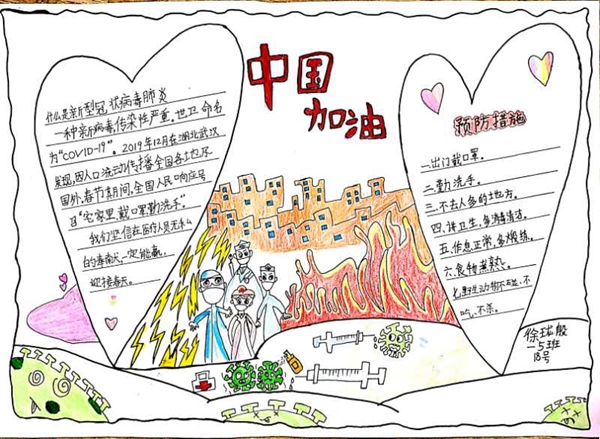 中国
加油
什么是新型冠状病毒肺炎
一种新病毒,传染性严重,世卫命名
为“COVID-19”。2019年12月在湖北武汉
发现,因人口流动传播全国各地及
国外,春节期间,全国人民响应号
召“宅家里,戴口罩勤洗手”。
我们坚信在医疗人员无私
的奉献一定能赢,
迎接春天。
预防措施
一.出门戴口罩。
二.勤洗手。
三.不去人多的地方。
四.讲卫生,多消毒清洁。
五.作息正常,多锻炼。
六.食物煮熟。
七.野生动物不碰、不
吃、不杀。
徐瑞殷
一5班
18号